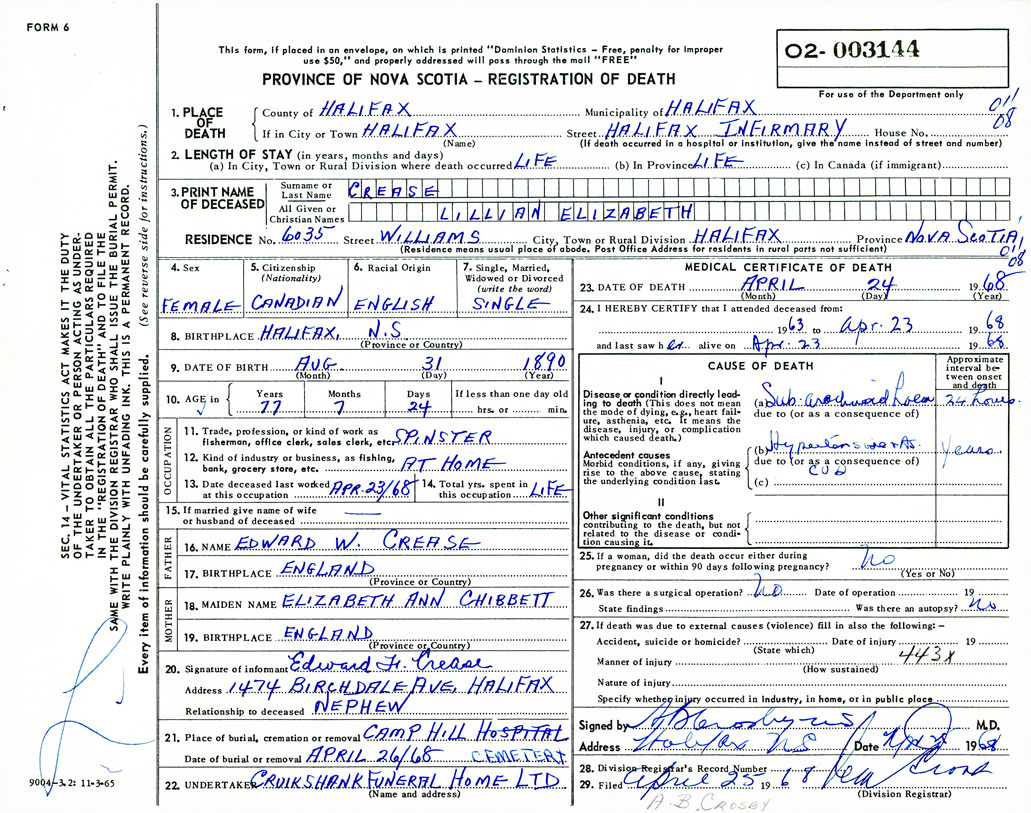 FORM 6
This form, if placed in an envelope, on which is printed "Dominion Statistics – Free, penalty for improper
use $50," and properly addressed will pass through the mail "FREE"
PROVINCE OF NOVA SCOTIA – REGISTRATION OF DEATH
02- 003144
For use of the Department only
011
08
1. PLACE OF DEATH
County of HALIFAX Municipality of HALIFAX
If in City or Town HALIFAX Street HALIFAX INFIRMARY House No.
(Name) (If death occurred in a hospital or institution, give the name instead of street and number)
2. LENGTH OF STAY (in years, months and days)
(a) In City, Town or Rural Division where death occurred LIFE (b) In Province LIFE (c) In Canada (if immigrant)
3. PRINT NAME OF DECEASED
Surname or Last Name CREASE
All Given or Christian Names LILLIAN ELIZABETH
RESIDENCE No. 6035 Street WILLIAMS City, Town or Rural Division HALIFAX Province NOVA SCOTIA
(Residence means usual place of abode. Post Office Address for residents in rural parts not sufficient)
011
08
4. Sex FEMALE
5. Citizenship (Nationality) CANADIAN
6. Racial Origin ENGLISH
7. Single, Married, Widowed or Divorced (write the word) SINGLE
8. BIRTHPLACE HALIFAX, N.S
(Province or Country)
9. DATE OF BIRTH AUG 31 1890
(Month) (Day) (Year)
10. AGE in Years 77 Months 7 Days 24 If less than one day old hrs. or min.
OCCUPATION
11. Trade, profession, or kind of work as fisherman, office clerk, sales clerk, etc. SPINSTER
12. Kind of industry or business, as fishing, bank, grocery store, etc. AT HOME
13. Date deceased last worked at this occupation APR. 23/68
14. Total yrs. spent in this occupation LIFE
15. If married give name of wife or husband of deceased —
FATHER
16. NAME EDWARD W. CREASE
17. BIRTHPLACE ENGLAND
(Province or Country)
MOTHER
18. MAIDEN NAME ELIZABETH ANN CHIBBETT
19. BIRTHPLACE ENGLAND
(Province or Country)
20. Signature of informant Edward F. Crease
Address 1474 BIRCHDALE AVE, HALIFAX
Relationship to deceased NEPHEW
21. Place of burial, cremation or removal CAMP HILL HOSPITAL
Date of burial or removal APRIL 26/68 CEMETERY
22. UNDERTAKER CRUIKSHANK FUNERAL HOME LTD
(Name and address)
MEDICAL CERTIFICATE OF DEATH
23. DATE OF DEATH APRIL 24 1968
(Month) (Day) (Year)
24. I HEREBY CERTIFY that I attended deceased from:
1963 to Apr. 23 1968
and last saw her alive on Apr. 23 1968
CAUSE OF DEATH
Approximate interval between onset and death
I
Disease or condition directly leading to death (This does not mean the mode of dying, e.g., heart failure, asthenia, etc. It means the disease, injury, or complication which caused death.)
(a) Sub. arachnoid 24 hours
due to (or as a consequence of)
Antecedent causes
Morbid conditions, if any, giving rise to the above cause, stating the underlying condition last.
(b) years
due to (or as a consequence of)
CVD
(c)
II
Other significant conditions
contributing to the death, but not related to the disease or condition causing it.
25. If a woman, did the death occur either during pregnancy or within 90 days following pregnancy? No
(Yes or No)
26. Was there a surgical operation? No Date of operation 19
State findings Was there an autopsy? No
27. If death was due to external causes (violence) fill in also the following: –
Accident, suicide or homicide? Date of injury 19
(State which)
443X
Manner of injury
(How sustained)
Nature of injury
Specify whether injury occurred in Industry, in home, or in public place
Signed by M.D.
Address Halifax NS Date 1968
28. Division Registrar's Record Number
29. Filed April 25 1968
(Division Registrar)
A. B. CROSBY
SEC. 14 – VITAL STATISTICS ACT MAKES IT THE DUTY
OF THE UNDERTAKER OR PERSON ACTING AS UNDER-
TAKER TO OBTAIN ALL THE PARTICULARS REQUIRED
IN THE "REGISTRATION OF DEATH" AND TO FILE THE
SAME WITH THE DIVISION REGISTRAR WHO SHALL ISSUE THE BURIAL PERMIT.
WRITE PLAINLY WITH UNFADING INK. THIS IS A PERMANENT RECORD.
Every item of information should be carefully supplied. (See reverse side for instructions.)
9004-3.2: 11-3-65